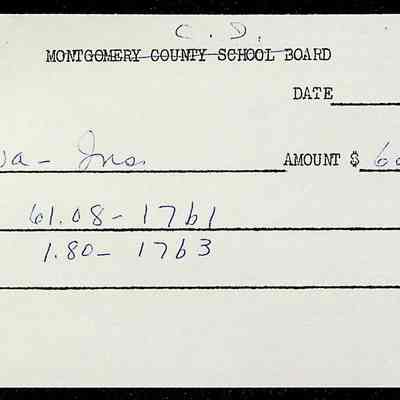 C. D.
MONTGOMERY COUNTY SCHOOL BOARD
DATE
Ins. AMOUNT $ 6
61.08 - 1761
1.80 - 1763